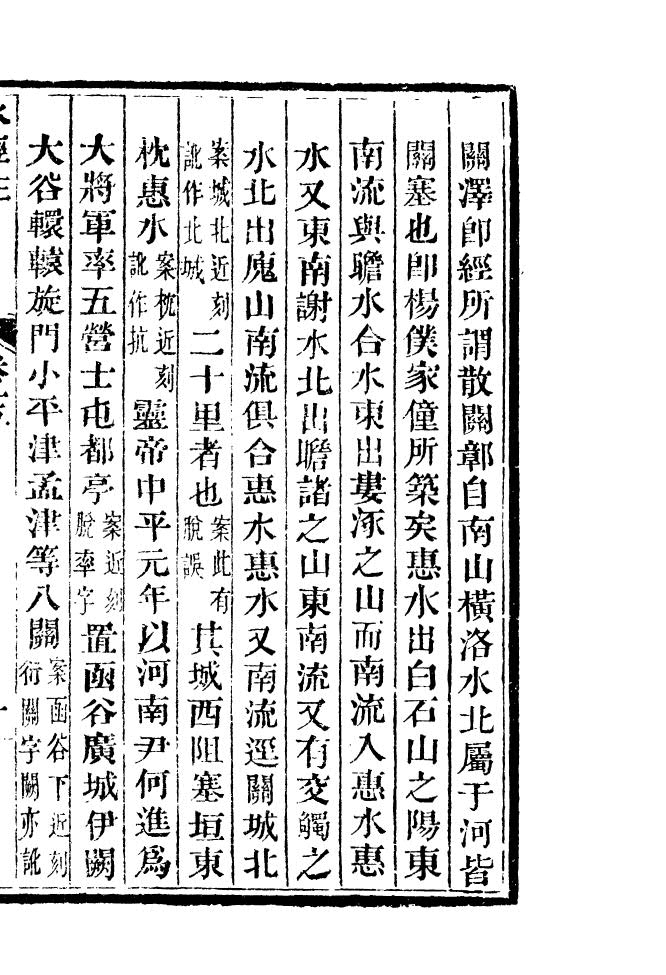 關澤卽經所謂散關鄣自南山橫洛水北屬于河皆
關塞也卽楊僕家僮所築矣惠水出白石山之陽東
南流與瞻水合水東出婁涿之山而南流入惠水惠
水又東南謝水北出瞻諸之山東南流又有交觸之
水北出廆山南流俱合惠水惠水又南流逕關城北
案城北近刻訛作北城二十里者也案此有脫誤其城西阻塞垣東
枕惠水案枕近刻訛作抗靈帝中平元年以河南尹何進爲
大將軍率五營士屯都亭案近刻脫率字置函谷廣城伊闕
大谷轘轅旋門小平津孟津等八關案函谷下近刻衍關字闕亦訛
水經注